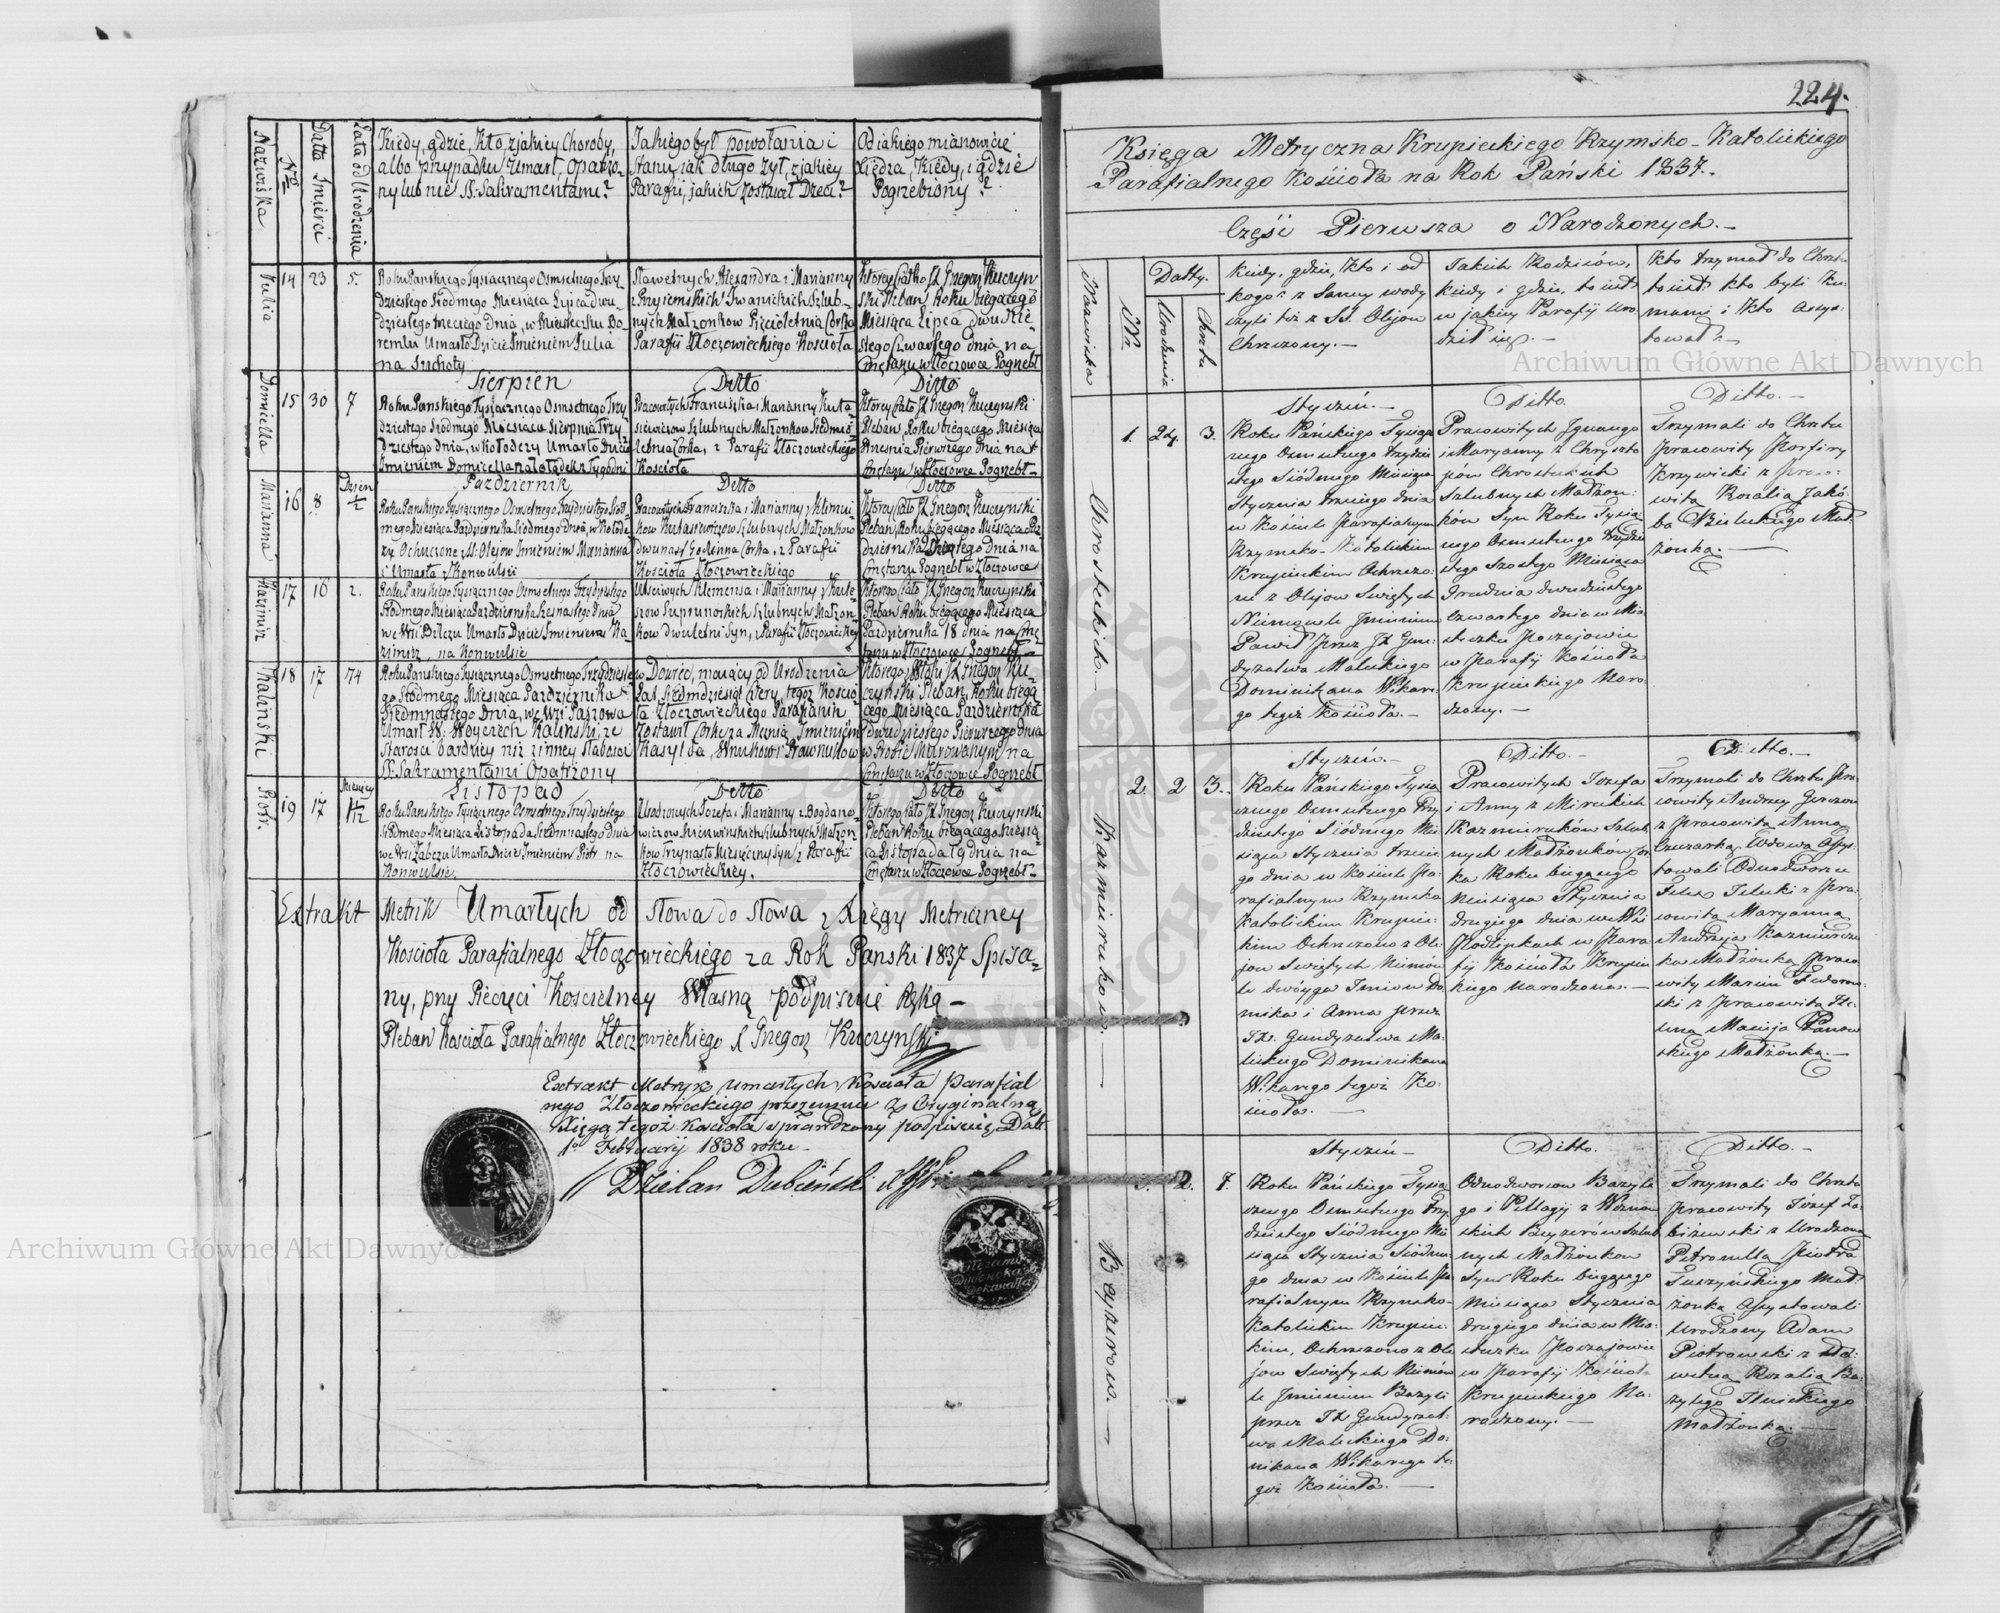 Nazwiska
Nro
Datta Śmierci
Lata od Urodzenia
Kiedy, gdzie, Kto, z jakiey Choroby,
albo Przypadku Umarł, Opatrzo-
ny lub nie SS. Sakramentami?
Jakiego był powołania i
Stanu, jak długo żył, z jakiey
Parafii, jakich zostawił Dzieci?
Od jakiego mianowicie
Xiędza, Kiedy, i gdzie
Pogrzebiony?
Julia
14
23
5.
Roku Panskiego Tysiącznego Osmsetnego Trzy
dziestego Siodmego Miesiąca Lipca dwu-
dziestego trzeciego dnia, w Miasteczku Bo-
remlu Umarło Dziecie Imieniem Julia
na Suchoty
Sławetnych Alexandra i Marianny
z Pnysiemskich Iwanickich Szlub-
nych Małżonkow Pięcioletnia Corka
Parafii Złoczowieckiego Kościoła
Ktorey Ciałko JX Gregorz Kuczyn
ski Pleban Roku biegącego
Miesiąca Lipca dwudzie-
stego Czwartego dnia na
Cmętarzu w Złoczowce Pogrzebł
Domicella
15
30
7
Sierpien
Roku Panskiego Tysiącznego Osmsetnego Trzy
dziestego Siodmego Miesiąca Sierpnia Trzy-
dziestego dnia, w Kołodezy Umarło Dziecie
Imieniem Domicella
Ditto
Pracowitych Franciszka i Marianny Kuta-
siewiczow Szlubnych Małżonkow Siedmio-
letnia Corka, z Parafii Złoczowieckiego
Kościoła
Ditto
Ktorey Ciało JX Gregorz Kuczynski
Pleban Roku biegącego Miesiąca
Wrzesnia Pierwszego Dnia na
Cmętarzu w Złoczowce Pogrzebł-
Marianna
16
8
Dzień
1/2
Pazdziernik
Roku Panskiego Tysiącznego Osmsetnego Trzydziestego Siod-
mego Miesiąca Pazdziernika Siodmego Dnia, w Kołode-
zy Ochrzczone z SS. Olejow Imieniem Marianna
i Umarła z Konwulsii
Ditto
Pracowitych Franciszka i Marianny z Klimiu-
kow Kutasiewiczow Szlubnych Małżonkow
dwunasto Godzinna Corka, z Parafii
Kościoła Złoczowieckiego
Ditto
Ktorey Ciało JX Gregorz Kuczynski
Pleban Roku biegącego Miesiąca Paz
dziernika Osmego Dnia na
Cmętarzu Pogrzebł w Złoczowce
Kazimirz
17
16
2.
Roku Panskiego Tysiącznego Osmsetnego Trzydziestego
Siodmego Miesiąca Pazdziernika Szesnastego Dnia
we Wsi Bilczu Umarło Dziecie Imieniem Ka
zimirz, na Konwulsie
Uczciwych Klemensa i Marianny z Kule-
szow Suprunoskich Szlubnych Małżon-
kow dwuletni Syn, z Parafii Złoczowieckiey
Ktorego Ciało JX Gregorz Kuczynski
Pleban Roku biegącego Miesiąca
Pazdziernika 18 dnia na Cmę
tarzu w Złoczowce Pogrzebł-
Kalinski
18
17
74
Roku Panskiego Tysiącznego Osmsetnego Trzydzieste
go Siodmego Miesiąca Pazdziernika
Siedmnastego Dnia, we Wsi Paszowa
Umarł W: Woyciech Kalinski, ze
Starosci bardziey niż z inney słabosci
SS. Sakramentami Opatrzony
Wdowiec, mający od Urodzenia
Lat Siedmdziesiąt Cztery, tegoż Koscio
ła Złoczowieckiego Parafianin
Zostawił Corkę za Mężią Imieniem
Kasylda, Wnukow i Prawnukow
Ktorego Zwłoki JX Gregorz Ku-
czynski Pleban, Roku biegą
cego Miesiąca Pazdziernika
dwudziestego Pierwszego dnia
w Grobie Murowanym na
Cmętarzu w Złoczowce Pogrzebł
Piotr.
19
17
Miesięcy
1 1/12
Listopad
Roku Panskiego Tysiącznego Osmsetnego Trzydziestego
Siodmego Miesiąca Listopada, Siedmnastego Dnia
we Wsi Zabczu Umarło Dziecie Imieniem Piotr na
Konwulsie.
Ditto
Urodzonych Jozefa i Marianny z Bogdano-
wiczow Szlubnych Małżon-
kow Trzynasto Miesięczny Syn z Parafii
Złoczowieckiey.
Ditto
Ktorego Ciało JX Gregorz Kuczynski
Pleban Roku biegącego Miesią
ca Listopada 19 dnia na
Cmętarzu w Złoczowce Pogrzebł-
Extrakt Metrik Umarłych od słowa do słowa z Xięgy Metriczney
Kościoła Parafialnego Złoczowieckiego za Rok Panski 1837 Spisa-
ny, przy Pieczęci Koscielney Własną podpisuię Ręką-
Pleban Kościoła Parafialnego Złoczowieckiego X Gregorz Kuczynski
Extrakt Metryk umarłych Kościoła Parafial
nego Złoczowieckiego przezemnie z Oryginalną
Xięgą tegoż Kościoła sprawdzony podpisuię Datt
1o Februarij 1838 roku-
Dziekan Dubieński
224.
Księga Metryczna Krupieckiego Rzymsko-Katolickiego
Parafialnego Kościoła na Rok Pański 1837.-
Część Pierwsza o Narodzonych.-
Nazwiska
Nr.
Datty.
Urodzenia
Chrztu
Kiedy, gdzie, Kto i od
kogo? z Samey wody
czyli też z SS. Olejow
Chrzczony.-
Jakich Rodziców,
kiedy i gdzie, to iest
w jakiey Parafij uro-
dził się.-
Kto trzymał do Chrztu
to iest: kto byli Ku-
mami i Kto Assys-
tował?-
Chrostukich.-
1.
24.
3.
Styczeń.-
Roku Pańskiego Tysią-
cznego Osmsetnego Trzydzie
stego Siódmego Miesiąca
Stycznia trzeciego dnia
w Kościele Parafialnym
Rzymsko-Katolickim
Krupieckim Ochrzczo-
no z Olejow Swiętych
Niemowle Imieniem
Paweł przez JX Gun-
dyzalwa Maleckiego
Dominikana Wikare-
go tegoż Kościoła.-
Ditto.
Pracowitych Ignacego
i Maryanny z Chryszto
pów Chrostukich
Szlubnych Małżon-
ków Syn Roku Tysią-
cznego Osmsetnego Trzydzie
stego Szostego Miesiąca
Grudnia dwudziestego
Czwartego dnia w Mia
steczku Poczajowie
w Parafij Kościoła
Krupieckiego Naro-
dzony.-
Ditto.-
Trzymali do Chrztu
Pracowity Porfiry
Krzywicki z Praco-
witą Rozalią Jakó-
ba Małżonką.-
Kazmirukow.-
2.
2
3.
Styczeń.-
Roku Pańskiego Tysią-
cznego Osmsetnego Trzy
dziestego Siódmego Mie
siąca Stycznia trzecie
go dnia w Kościele Pa-
rafialnym Rzymsko
Katolickim Krupiec-
kim Ochrzczono z Ole
jow Swiętych Niemow
le dwóyga Imion Do
mika i Anna przez
JX. Gundyzalwa Ma-
leckiego Dominikana
Wikarego tegoż Ko-
ścioła.-
Ditto.-
Pracowitych Jozefa
i Anny z Mirukich
Kazmiruków Szlub-
nych Małżonków Cor
ka Roku biegącego
Miesiąca Stycznia
drugiego dnia we Wsi
Podlipkach w Para
fij Kościoła Krupiec
kiego narodzona.-
Ditto.-
Trzymali do Chrztu Pra-
cowity Andrzey
z Pracowitą Anną
Wdową Assys-
towali Odnodworzec
z Pra-
cowitą Maryanną
Andrzeja Kazmirczu
ka Małżonką Praco-
wity Marcin
ski z Pracowitą He-
leną Macieja Panow
skiego Małżonką.-
Beyzerow.-
3.
2.
7.
Styczeń-
Roku Pańskiego Tysią-
cznego Osmsetnego Trzy
dziestego Siódmego Mie
siąca Stycznia Siodme-
go dnia w Kościele Pa-
rafialnym Rzymsko-
Katolickim Krupiec-
kim, Ochrzczono z Ole
jow Swiętych Niemow
le Imieniem Bazyli
przez JX Gundyzal-
wa Maleckiego Do-
nikana Wikarego te-
goż Kościoła.-
Ditto.
Odnodworcow Bazyle
go i Pellagij z Woznow
skich Beyzerów Szlub
nych Małżonkow
Syn Roku biegącego
Miesiąca Stycznia
drugiego dnia w Mia-
steczku Poczajowie
w Parafij Kościoła
Krupieckiego Na-
rodzony.-
Ditto.-
Trzymali do Chrztu
Pracowity Józef Za-
biżewski z Urodzoną
Petronellą Piotra
Tuszyńskiego Mał-
żonką Assystowali
Urodzony Adam
Piotrowski z Sła-
wetną Rozalią Ba-
zylego Ilnickiego
Małżonką.-
Archiwum Główne Akt Dawnych
Archiwum Główne Akt Dawnych